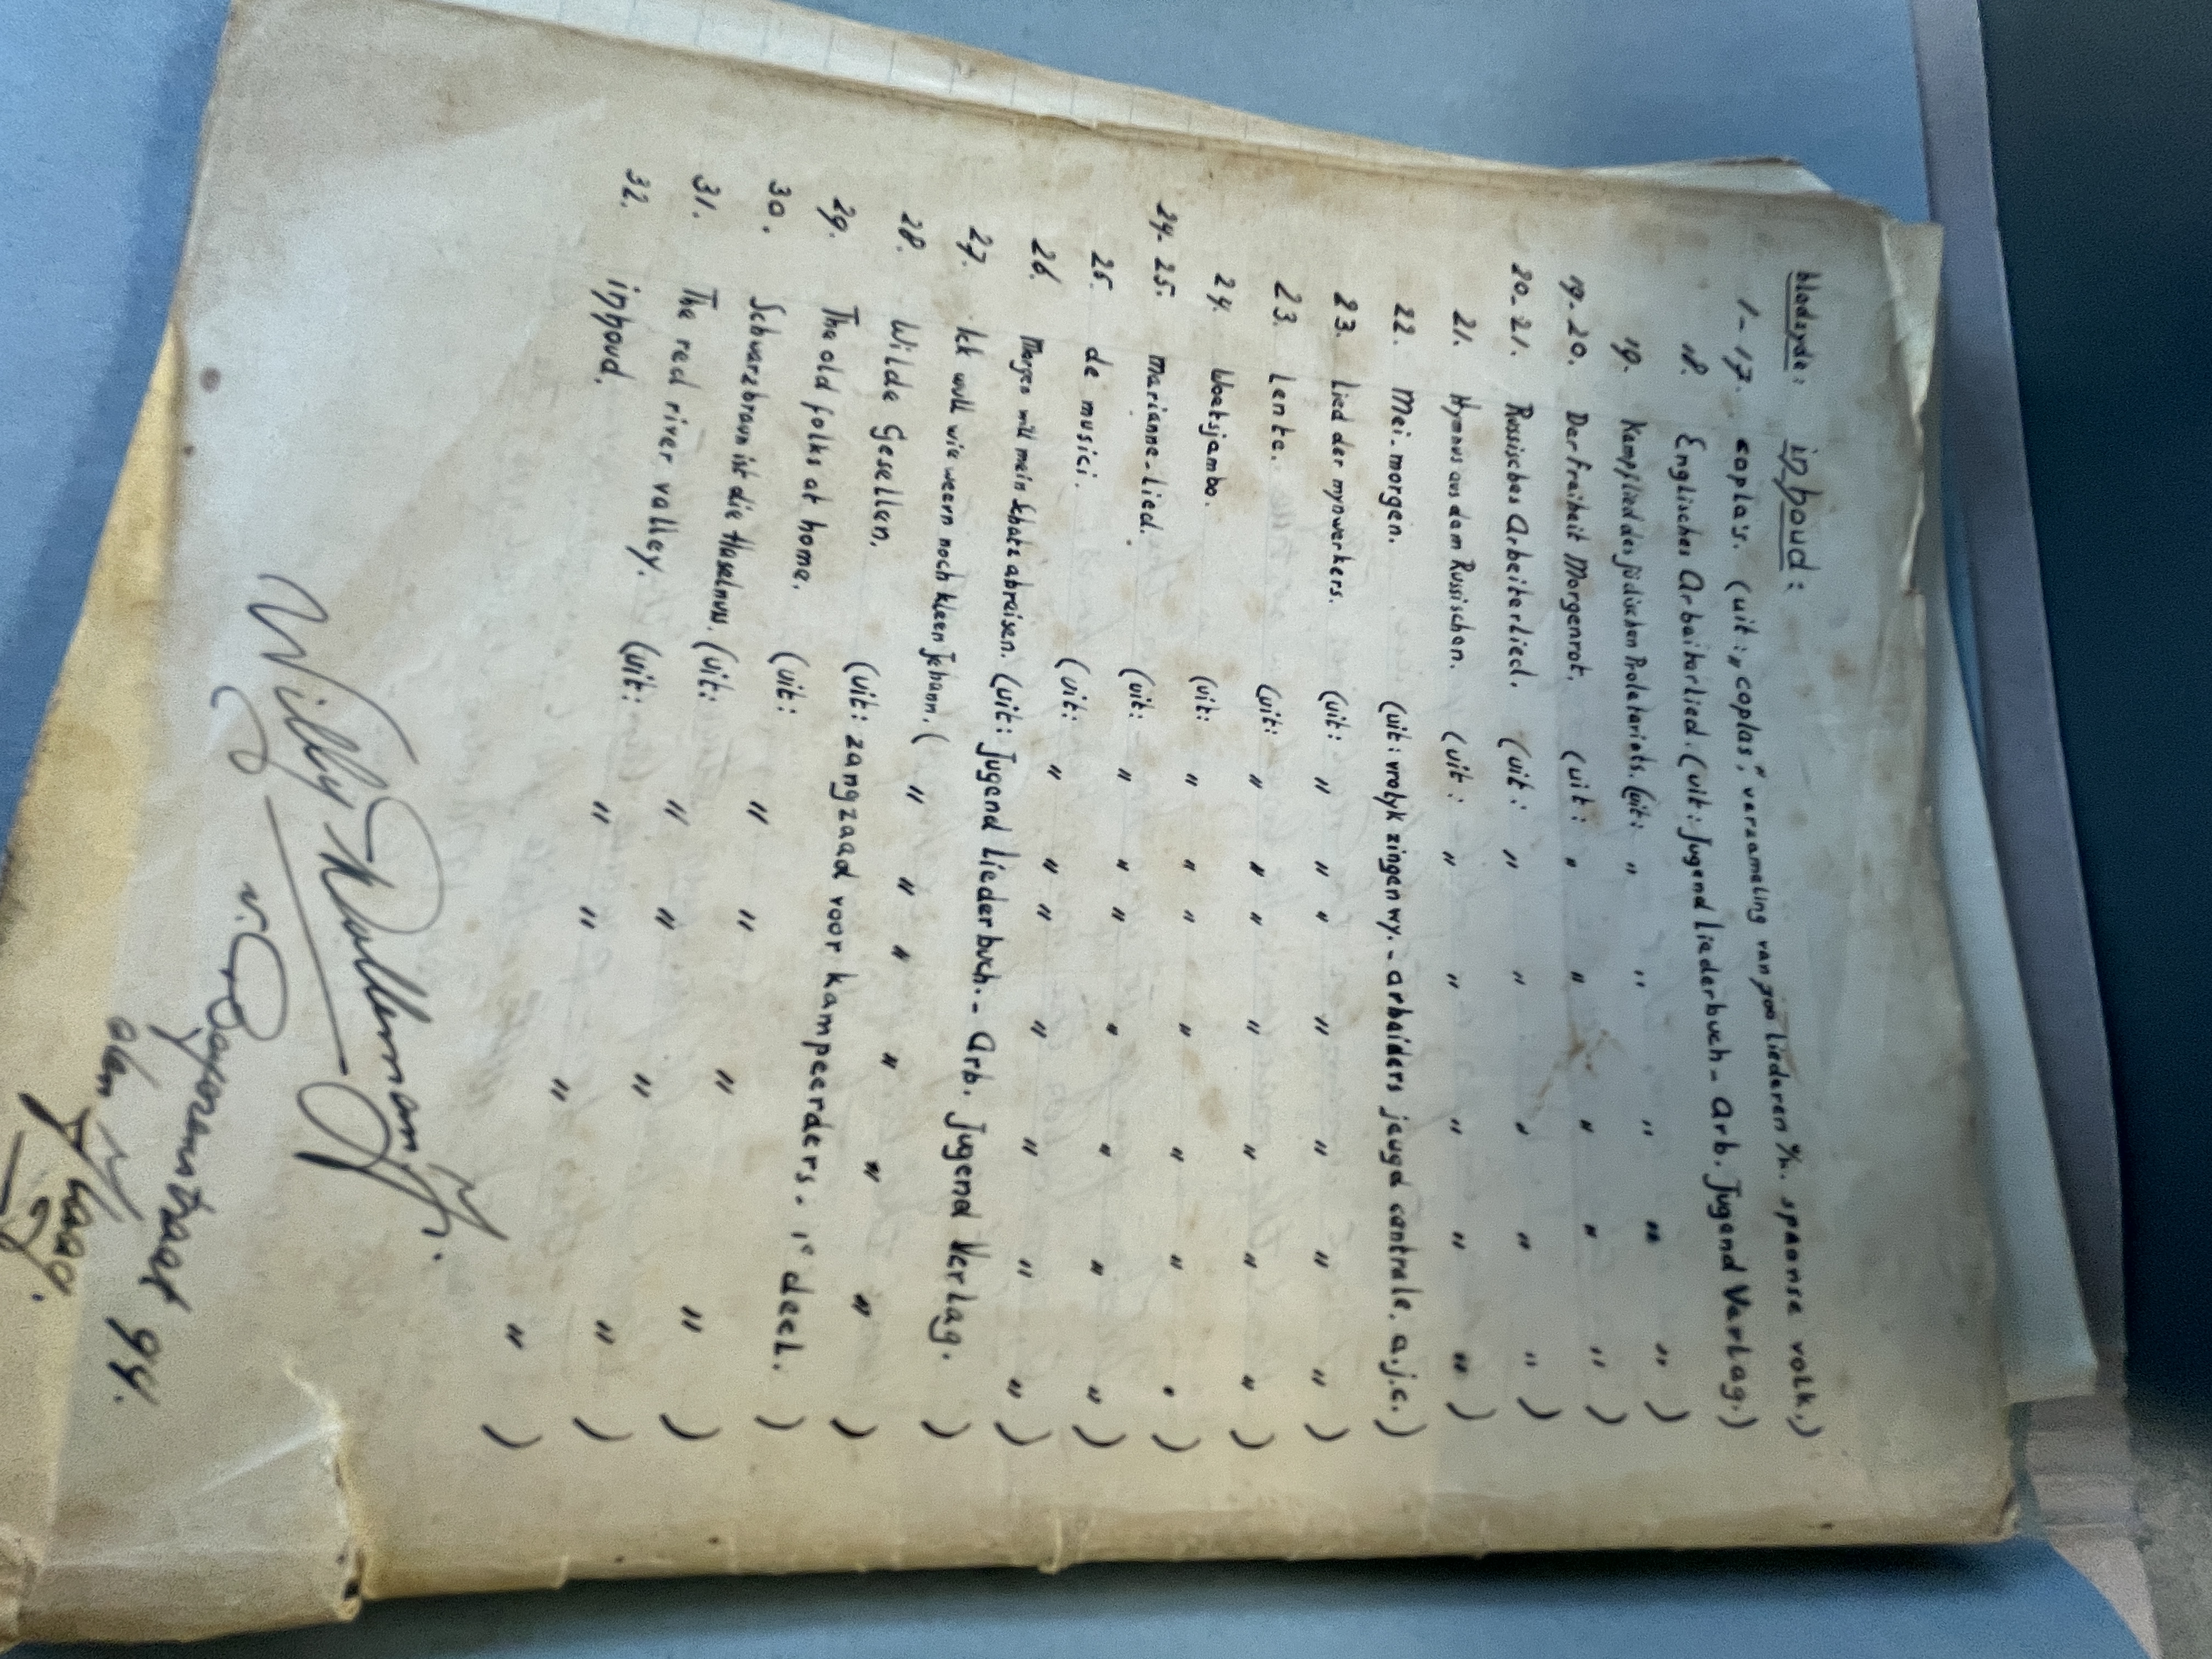 bladzyde: inhoud:
1-17. copla's. (uit: „coplas," verzameling van 700 liederen v/h. spaanse volk.)
18. Englisches Arbeiterlied. (uit: Jugend Liederbuch - Arb. Jugend Verlag.)
19. Kampflied des jüdischen Proletariats. (uit: " " " " " )
19-20. Der Freiheit Morgenrot. (uit: " " " " " )
20-21. Russisches Arbeiterlied. (uit: " " " " " )
21. Hymnus aus dem Russischen. (uit: " " " " " )
22. Mei-morgen. (uit: vrolyk zingen wy. - arbeiders jeugd centrale. a.j.c.)
23. Lied der mynwerkers. (uit: " " " " " " " )
23. Lente. (uit: " " " " " " " )
24. Woatsjambo. (uit: " " " " " " " )
24-25. Marianne-Lied. (uit: " " " " " " " )
25. de musici. (uit: " " " " " " " )
26. Morgen will mein Schatz abreisen. (uit: Jugend Liederbuch. - Arb. Jugend Verlag. )
27. Ick wull wie weern noch kleen Jehann. ( " " " " " " )
28. Wilde Gesellen. (uit: zangzaad voor kampeerders. 1e deel. )
29. The old folks at home. (uit: " " " " )
30. Schwarzbraun ist die Haselnuss. (uit: " " " " )
31. The red river valley. (uit: " " " " )
32. inhoud.
Willy
94.
den Haag.